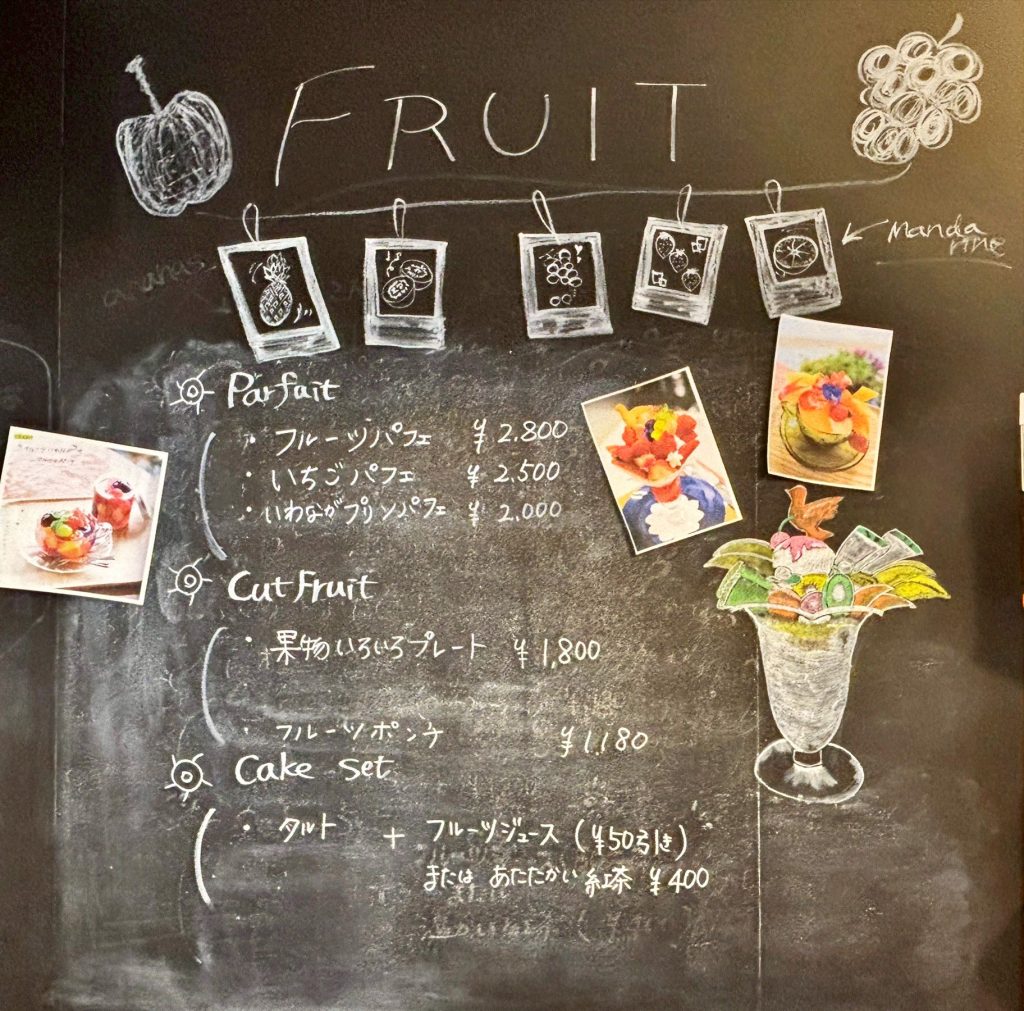 FRUIT
Manda
rine
ananas
Parfait
・フルーツパフェ ¥2.800
・いちごパフェ ¥2.500
・いわながプリンパフェ ¥2.000
Cut Fruit
・果物いろいろプレート ¥1,800
・フルーツポンチ ¥1,180
Cake set
・タルト + フルーツジュース (¥50引き)
または あたたかい 紅茶 ¥400